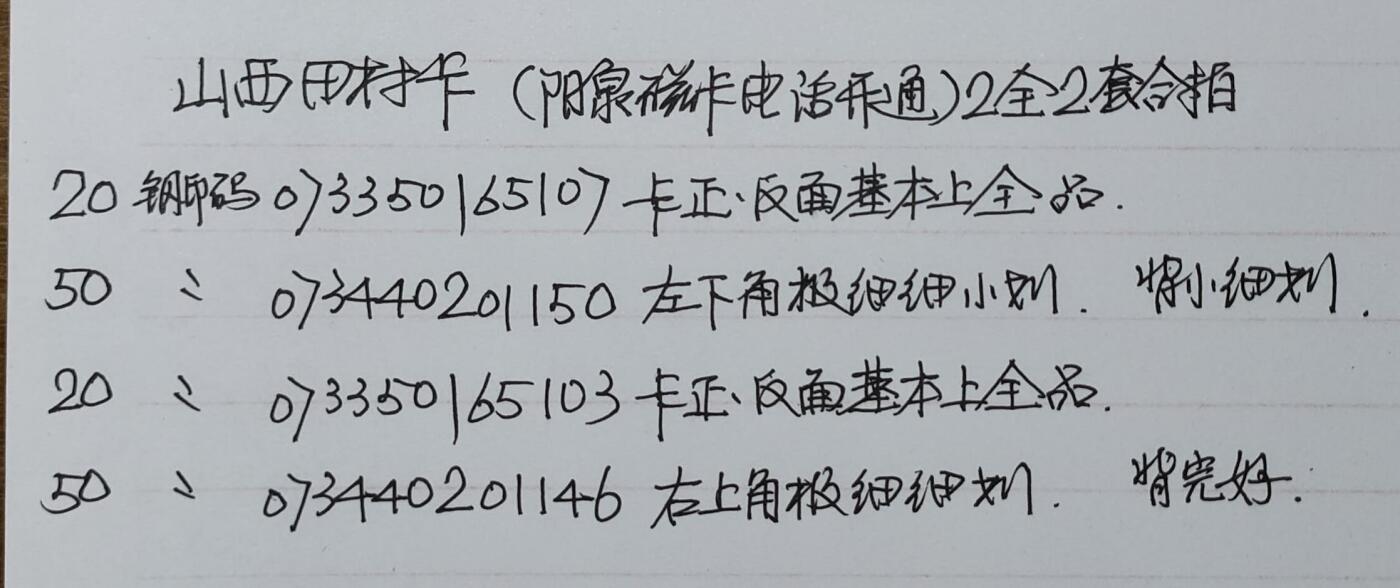 山西田村卡（阳泉磁卡电话开通）2全2套合拍
20 钢印码 073350165107 卡正、反面基本上全品.
50 〃 073440201150 左下角极细细小划. 背小细划.
20 〃 073350165103 卡正、反面基本上全品.
50 〃 073440201146 右上角极细细划. 背完好.